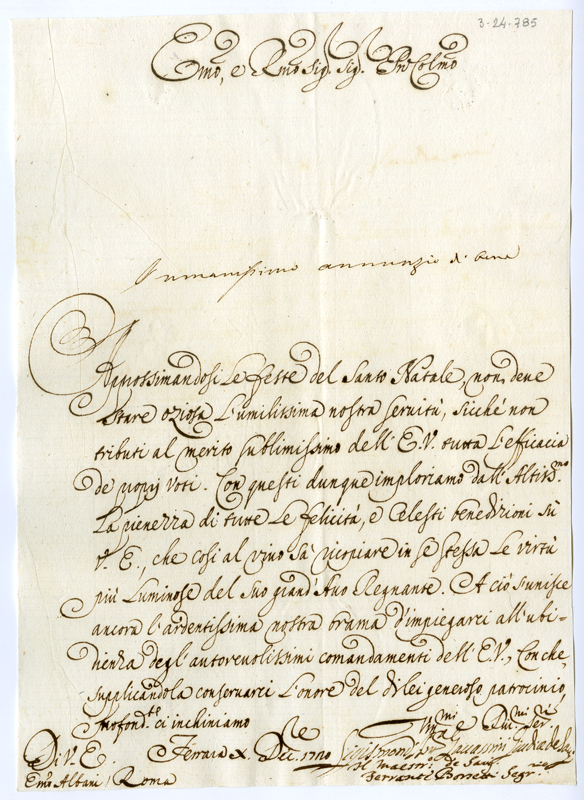 3-24-785
Emo, e Rmo Sig. Sig. Pro Colmo
Umanissimo annunzio di bene
Approssimandosi le feste del Santo Natale, non deve
stare oziosa l'umilissima nostra servitù, sicché non
tributi al merito sublimissimo dell'E.V. tutta l'efficacia
de nostri voti. Con questi dunque imploriamo dall'Altissmo
la pienezza di tutte le felicità, e celesti benedizioni sù
V. E., che così al vivo sà ricopiare in se stessa le virtù
più luminose del suo grand'Avo Regnante. A ciò s'unisce
ancora l'ardentissima nostra brama d'impiegarci all'ubi-
dienza degl'autorevolissimi comandamenti dell'E.V., Con che
supplicandola conservarci l'onore del di lei generoso patrocinio,
profondte ci inchiniamo
Di V. E. Ferrara X. Dicre 1720
Emo Albani / Roma
Il Maestro de Savi
Ferrante Borsetti Segr.